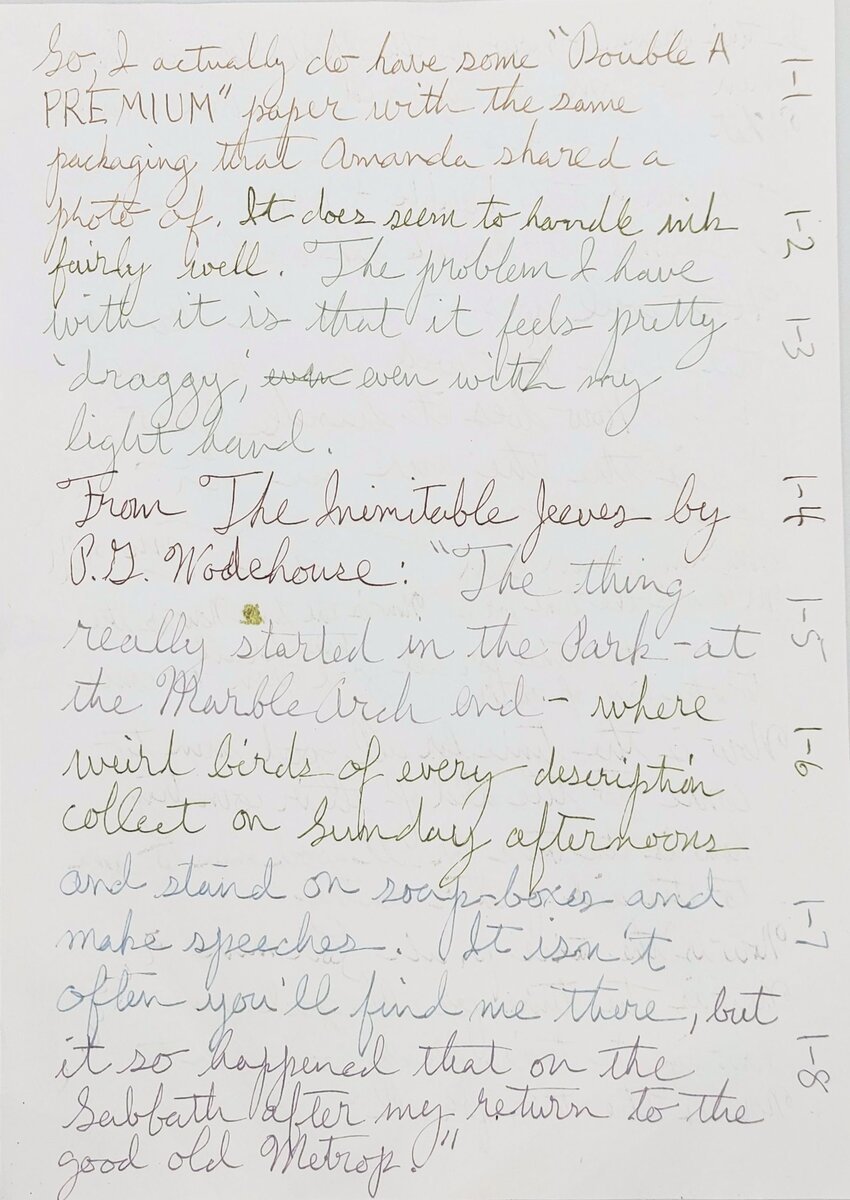 So, I actually do have some "Double A
PREMIUM" paper with the same
packaging that Amanda shared a
photo of. It does seem to handle ink
fairly well. The problem I have
with it is that it feels pretty
'draggy', even even with my
light hand.
From The Inimitable Jeeves by
P.G. Wodehouse: "The thing
really started in the Park-at
the Marble Arch end- where
weird birds of every description
collect on Sunday afternoons
and stand on soap-boxes and
make speeches. It isn't
often you'll find me there, but
it so happened that on the
Sabbath after my return to the
good old Metrop."
1-1
1-2
1-3
1-4
1-5
1-6
1-7
1-8